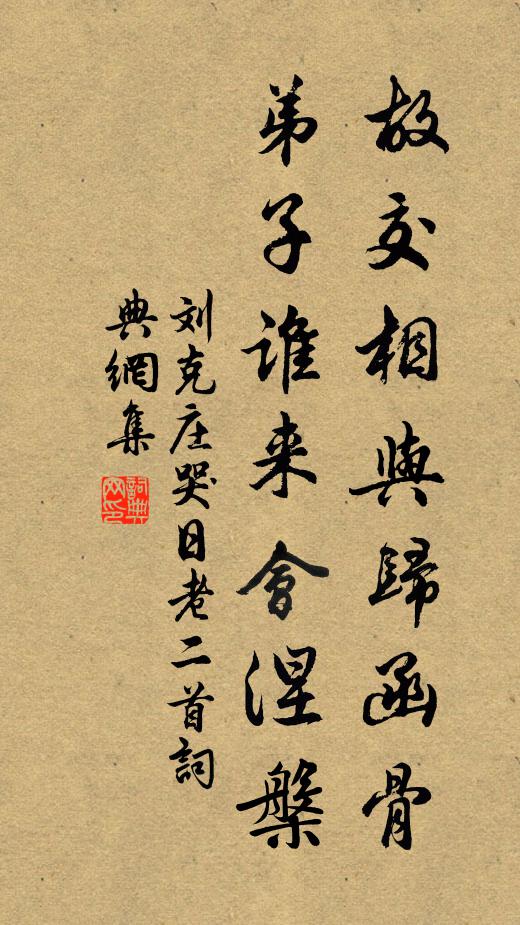 故交相與歸函骨
弟子誰来會涅槃
刘克庄哭日老二首詞
典網集
詞典網印